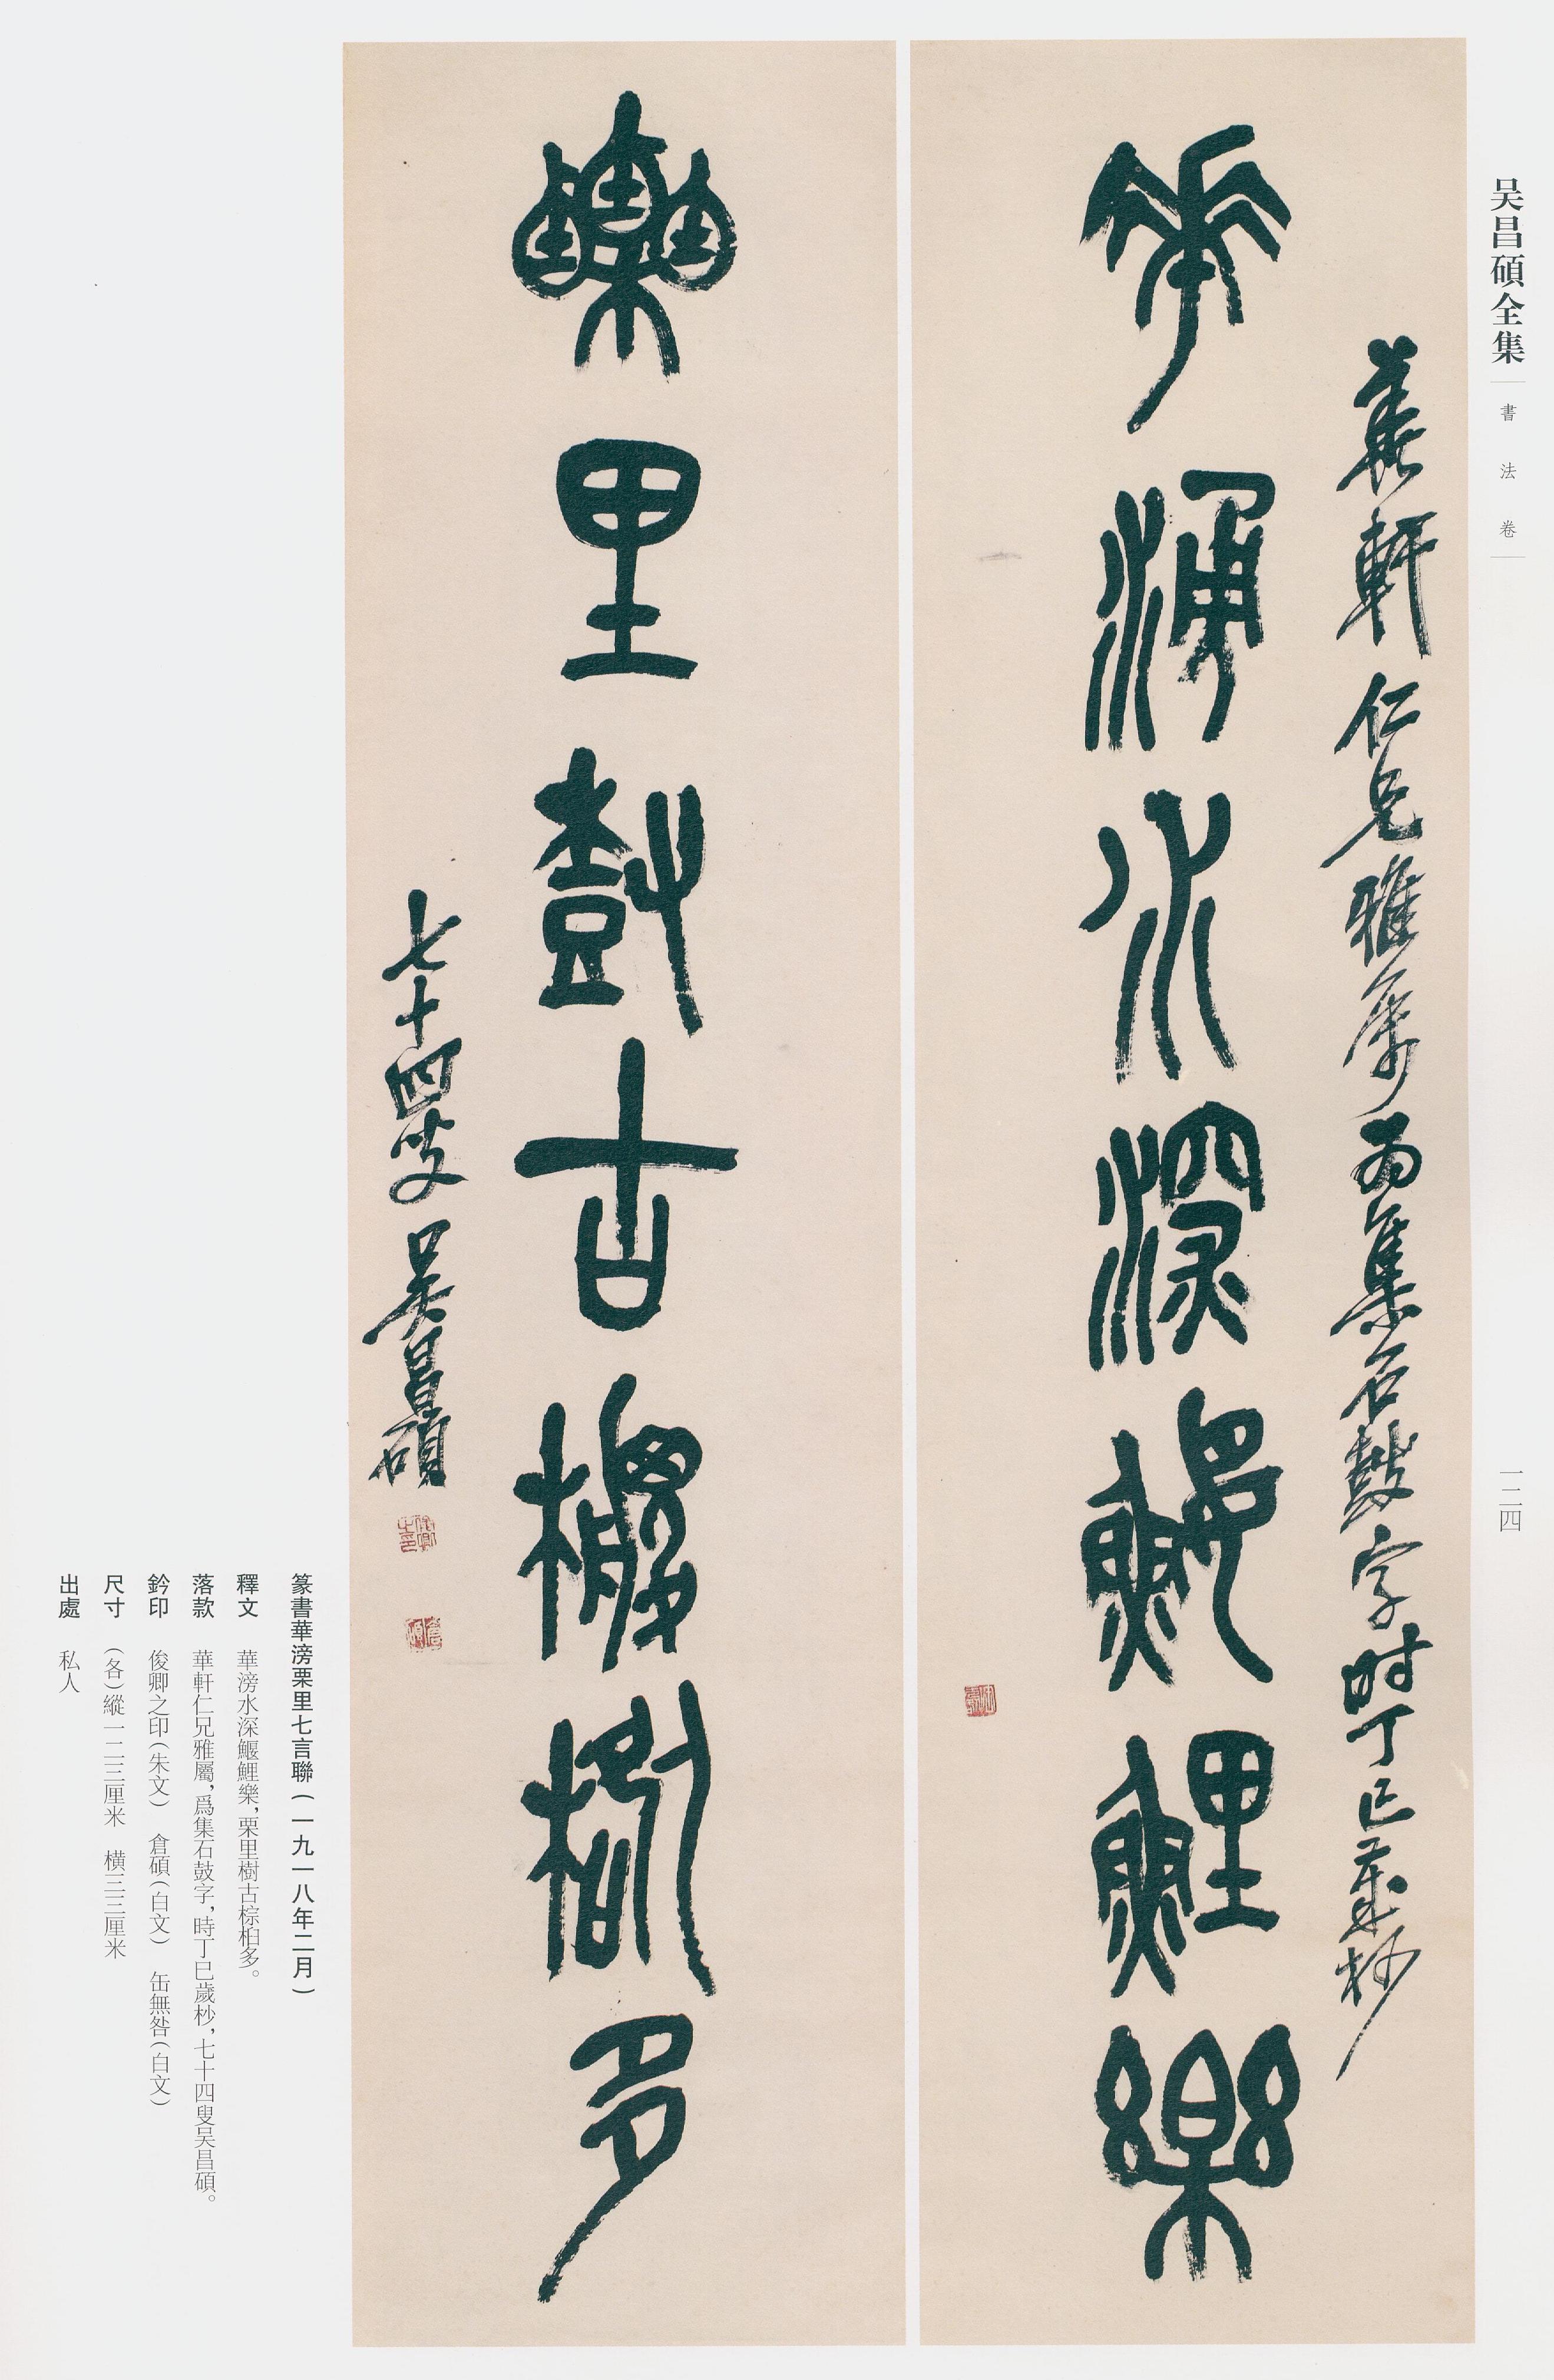 吴昌碩全集
書法卷
一二四
華軒仁兄雅屬為集石鼓字時丁巳歲杪
華滂水深鰋鯉樂
栗里尌古椶樹多
七十四叟吴昌碩
篆書華滂栗里七言聯(一九一八年二月)
釋文 華滂水深鰋鯉樂,栗里樹古棕柏多。
落款 華軒仁兄雅屬,爲集石鼓字,時丁巳歲杪,七十四叟吴昌碩。
鈐印 俊卿之印(朱文) 倉碩(白文) 缶無咎(白文)
尺寸 (各)縱一二三厘米 横三三厘米
出處 私人